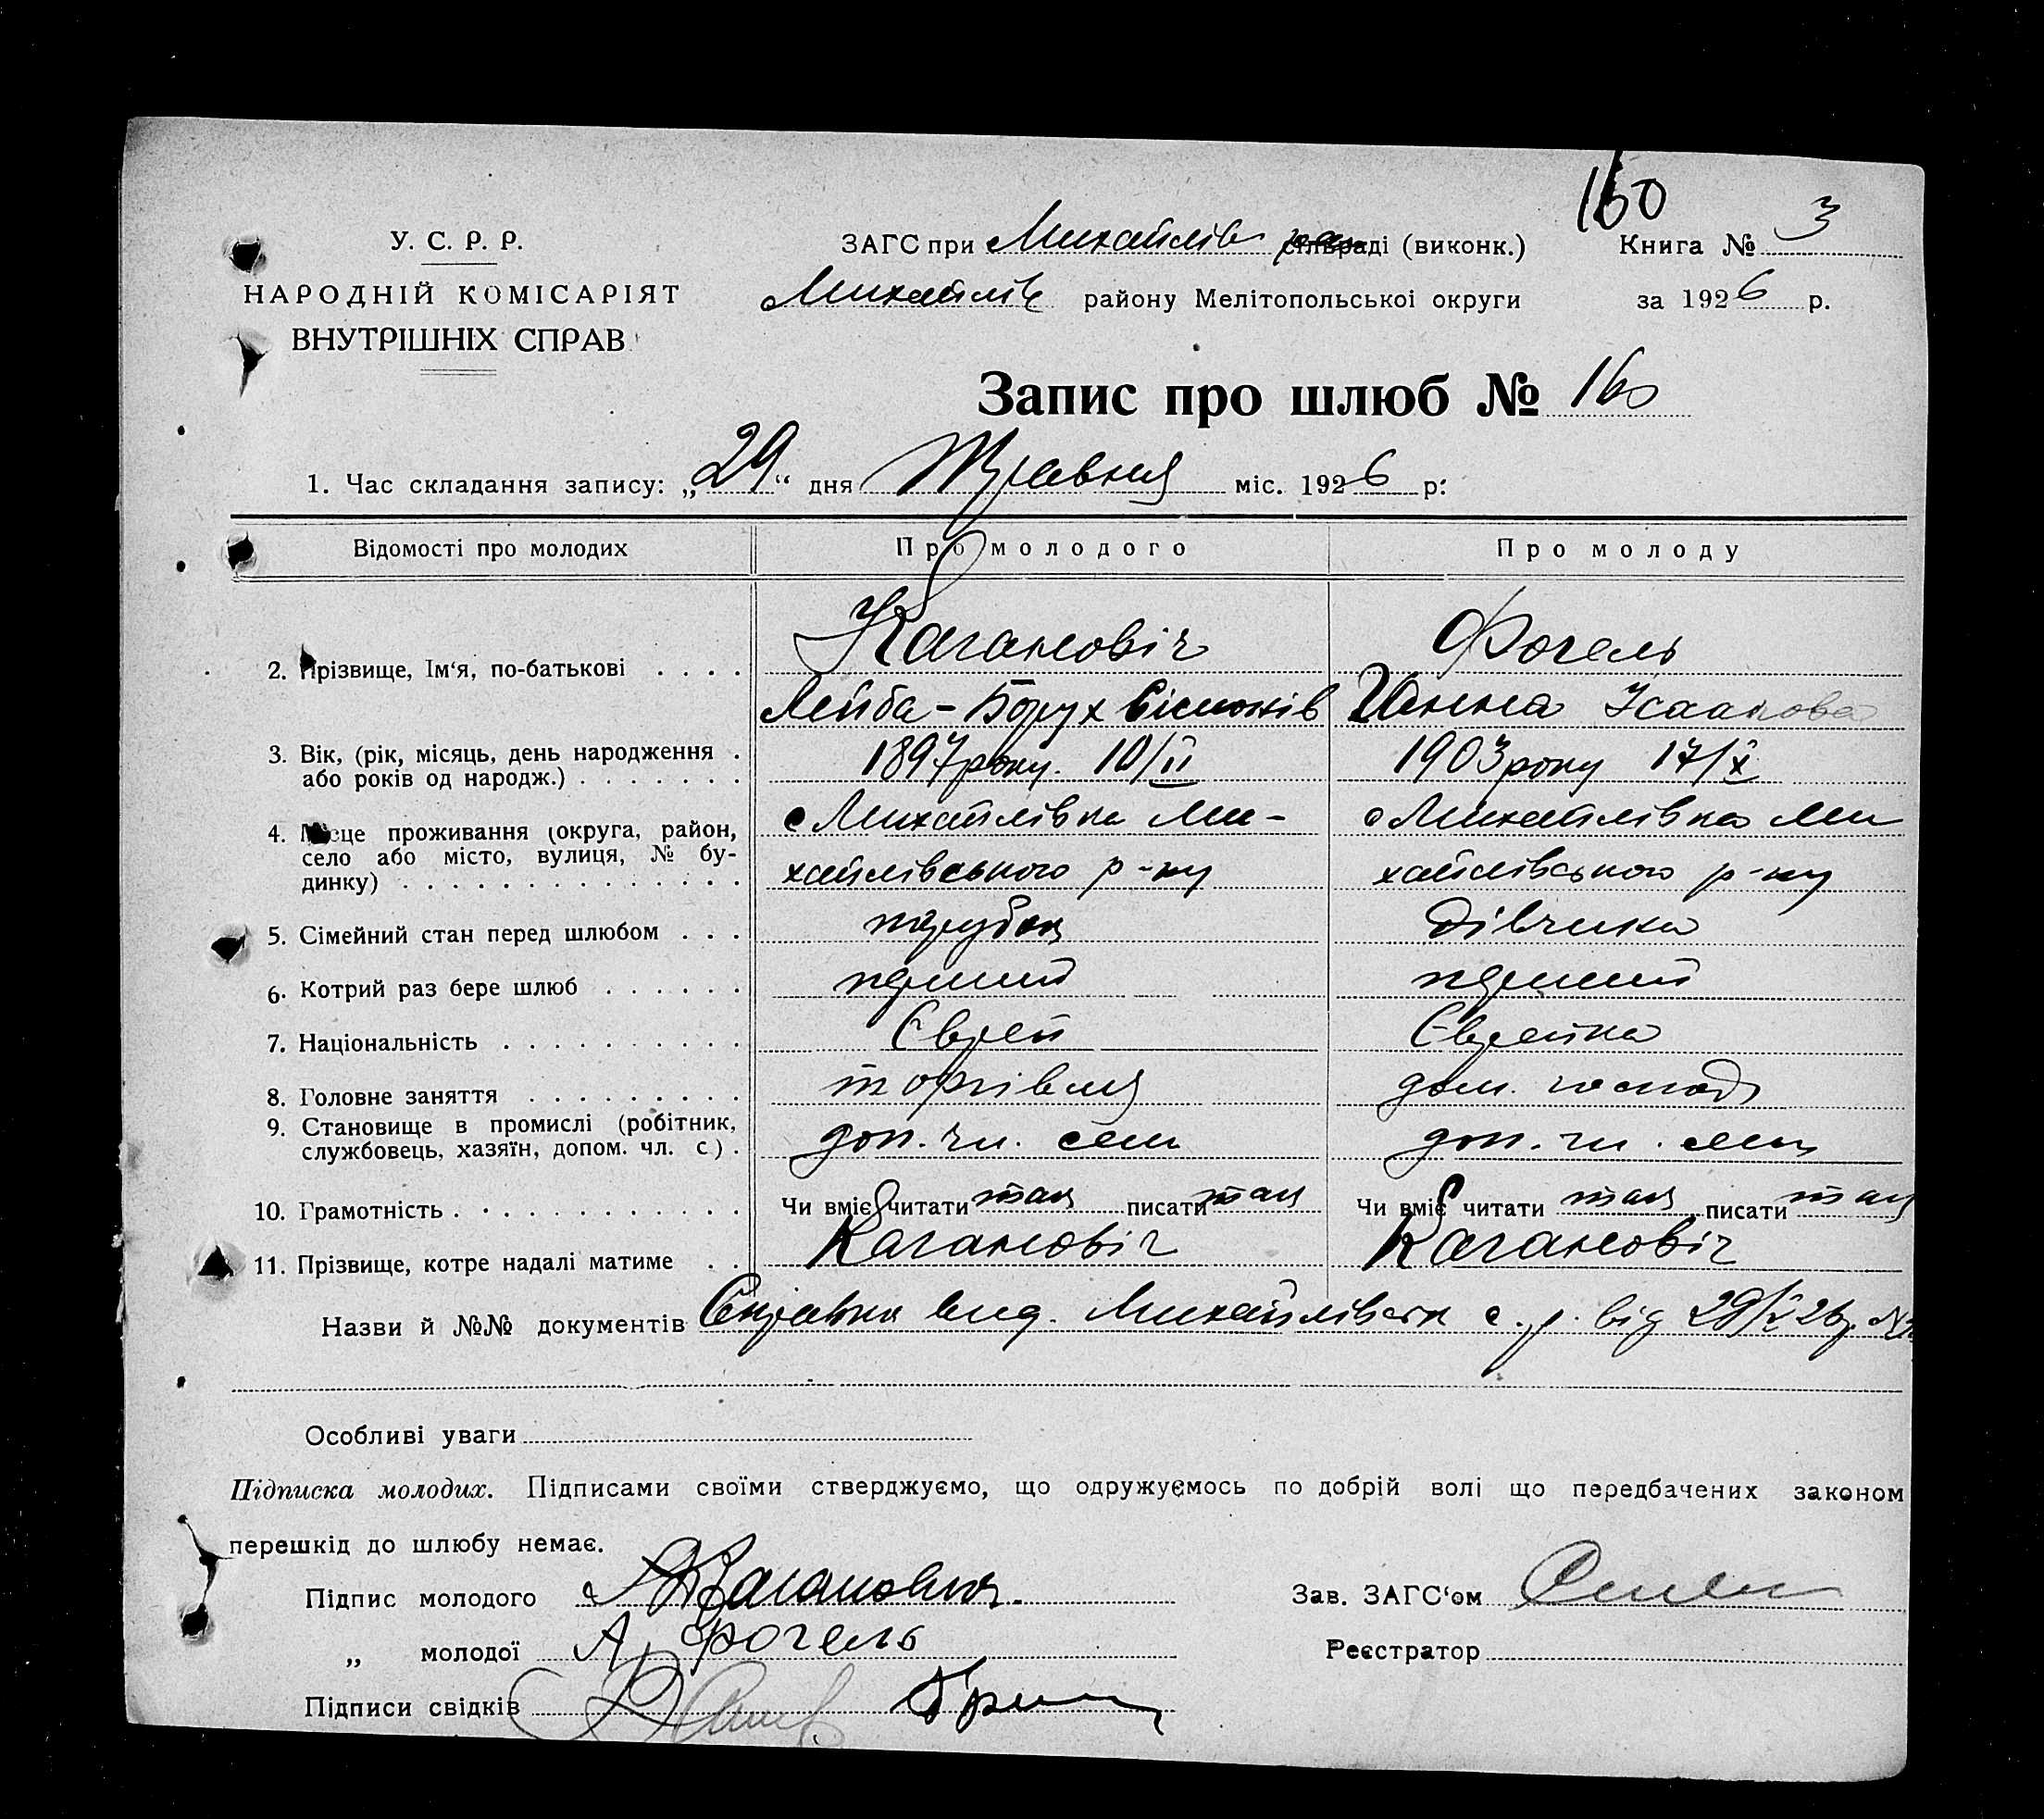 160
У. С. Р. Р.
НАРОДНІЙ КОМІСАРІЯТ
ВНУТРІШНІХ СПРАВ
ЗАГС при Михайлів сільраді (виконк.) Книга № 3
Михайлів району Мелітопольської округи за 1926 р.
Запис про шлюб № 160
1. Час складання запису: „29“ дня Травня міс. 1926 р.
Відомості про молодих Про молодого Про молоду
Каганович Фогель
2. Прізвище, Ім'я, по-батькові . . . .
Лейба-Борух Ханна Ісаакова
3. Вік, (рік, місяць, день народження . 1897 року. 10/II 1903 року 17/X
або років од народж.) . . . . . . .
4. Місце проживання (округа, район, с Михайлівка Ми- с Михайлівка Ми
село або місто, вулиця, № бу-
динку) . . . . . . . . . . . . . . хайлівського р-ну хайлівського р-ну
5. Сімейний стан перед шлюбом . . . парубок дівчина
6. Котрий раз бере шлюб . . . . . . перший перший
7. Національність . . . . . . . . . . Єврей Єврейка
8. Головне заняття . . . . . . . . . торгівля дом. господ
9. Становище в промислі (робітник,
службовець, хазяїн, допом. чл. с.) . доп. чл. сем доп. чл. сем
10. Грамотність . . . . . . . . . . . . Чи вміє читати так писати так Чи вміє читати так писати так
11. Прізвище, котре надалі матиме . . Каганович Каганович
Назви й №№ документів Справка вид. Михайлівськ с. р. від 29/V 26р. №
Особливі уваги
Підписка молодих. Підписами своїми стверджуємо, що одружуємось по добрій волі що передбачених законом
перешкід до шлюбу немає.
Підпис молодого Каганович Зав. ЗАГС'ом
„ молодої А. Фогель Реєстратор
Підписи свідків